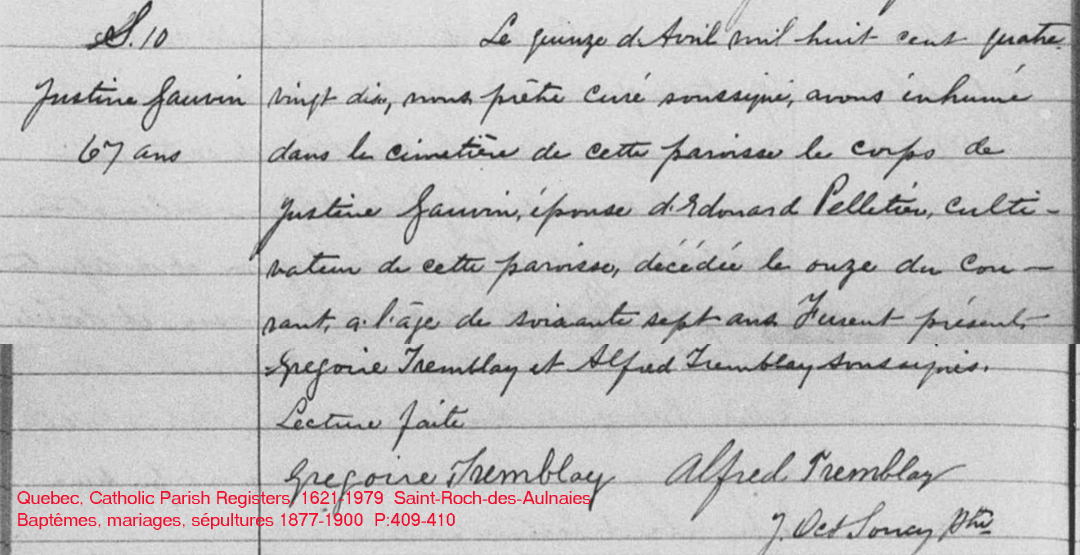 S. 10
Justine Gauvin
67 ans
Le quinze d'Avril mil huit cent quatre-
vingt dix, nous prêtre curé soussigné, avons inhumé
dans le cimetière de cette paroisse le corps de
Justine Gauvin, épouse d'Edouard Pelletier, culti-
vateur de cette paroisse, décédée le onze du cou-
rant, a l'âge de soixante sept ans Furent présents
Gregoire Tremblay et Alfred Tremblay soussignés.
Lecture faite
Gregoire Tremblay Alfred Tremblay
J. Oct Soucy Ptre
Quebec. Catholic Parish Registers, 1621-1979 Saint-Roch-des-Aulnaies
Baptêmes, mariages, sépultures 1877-1900 P:409-410